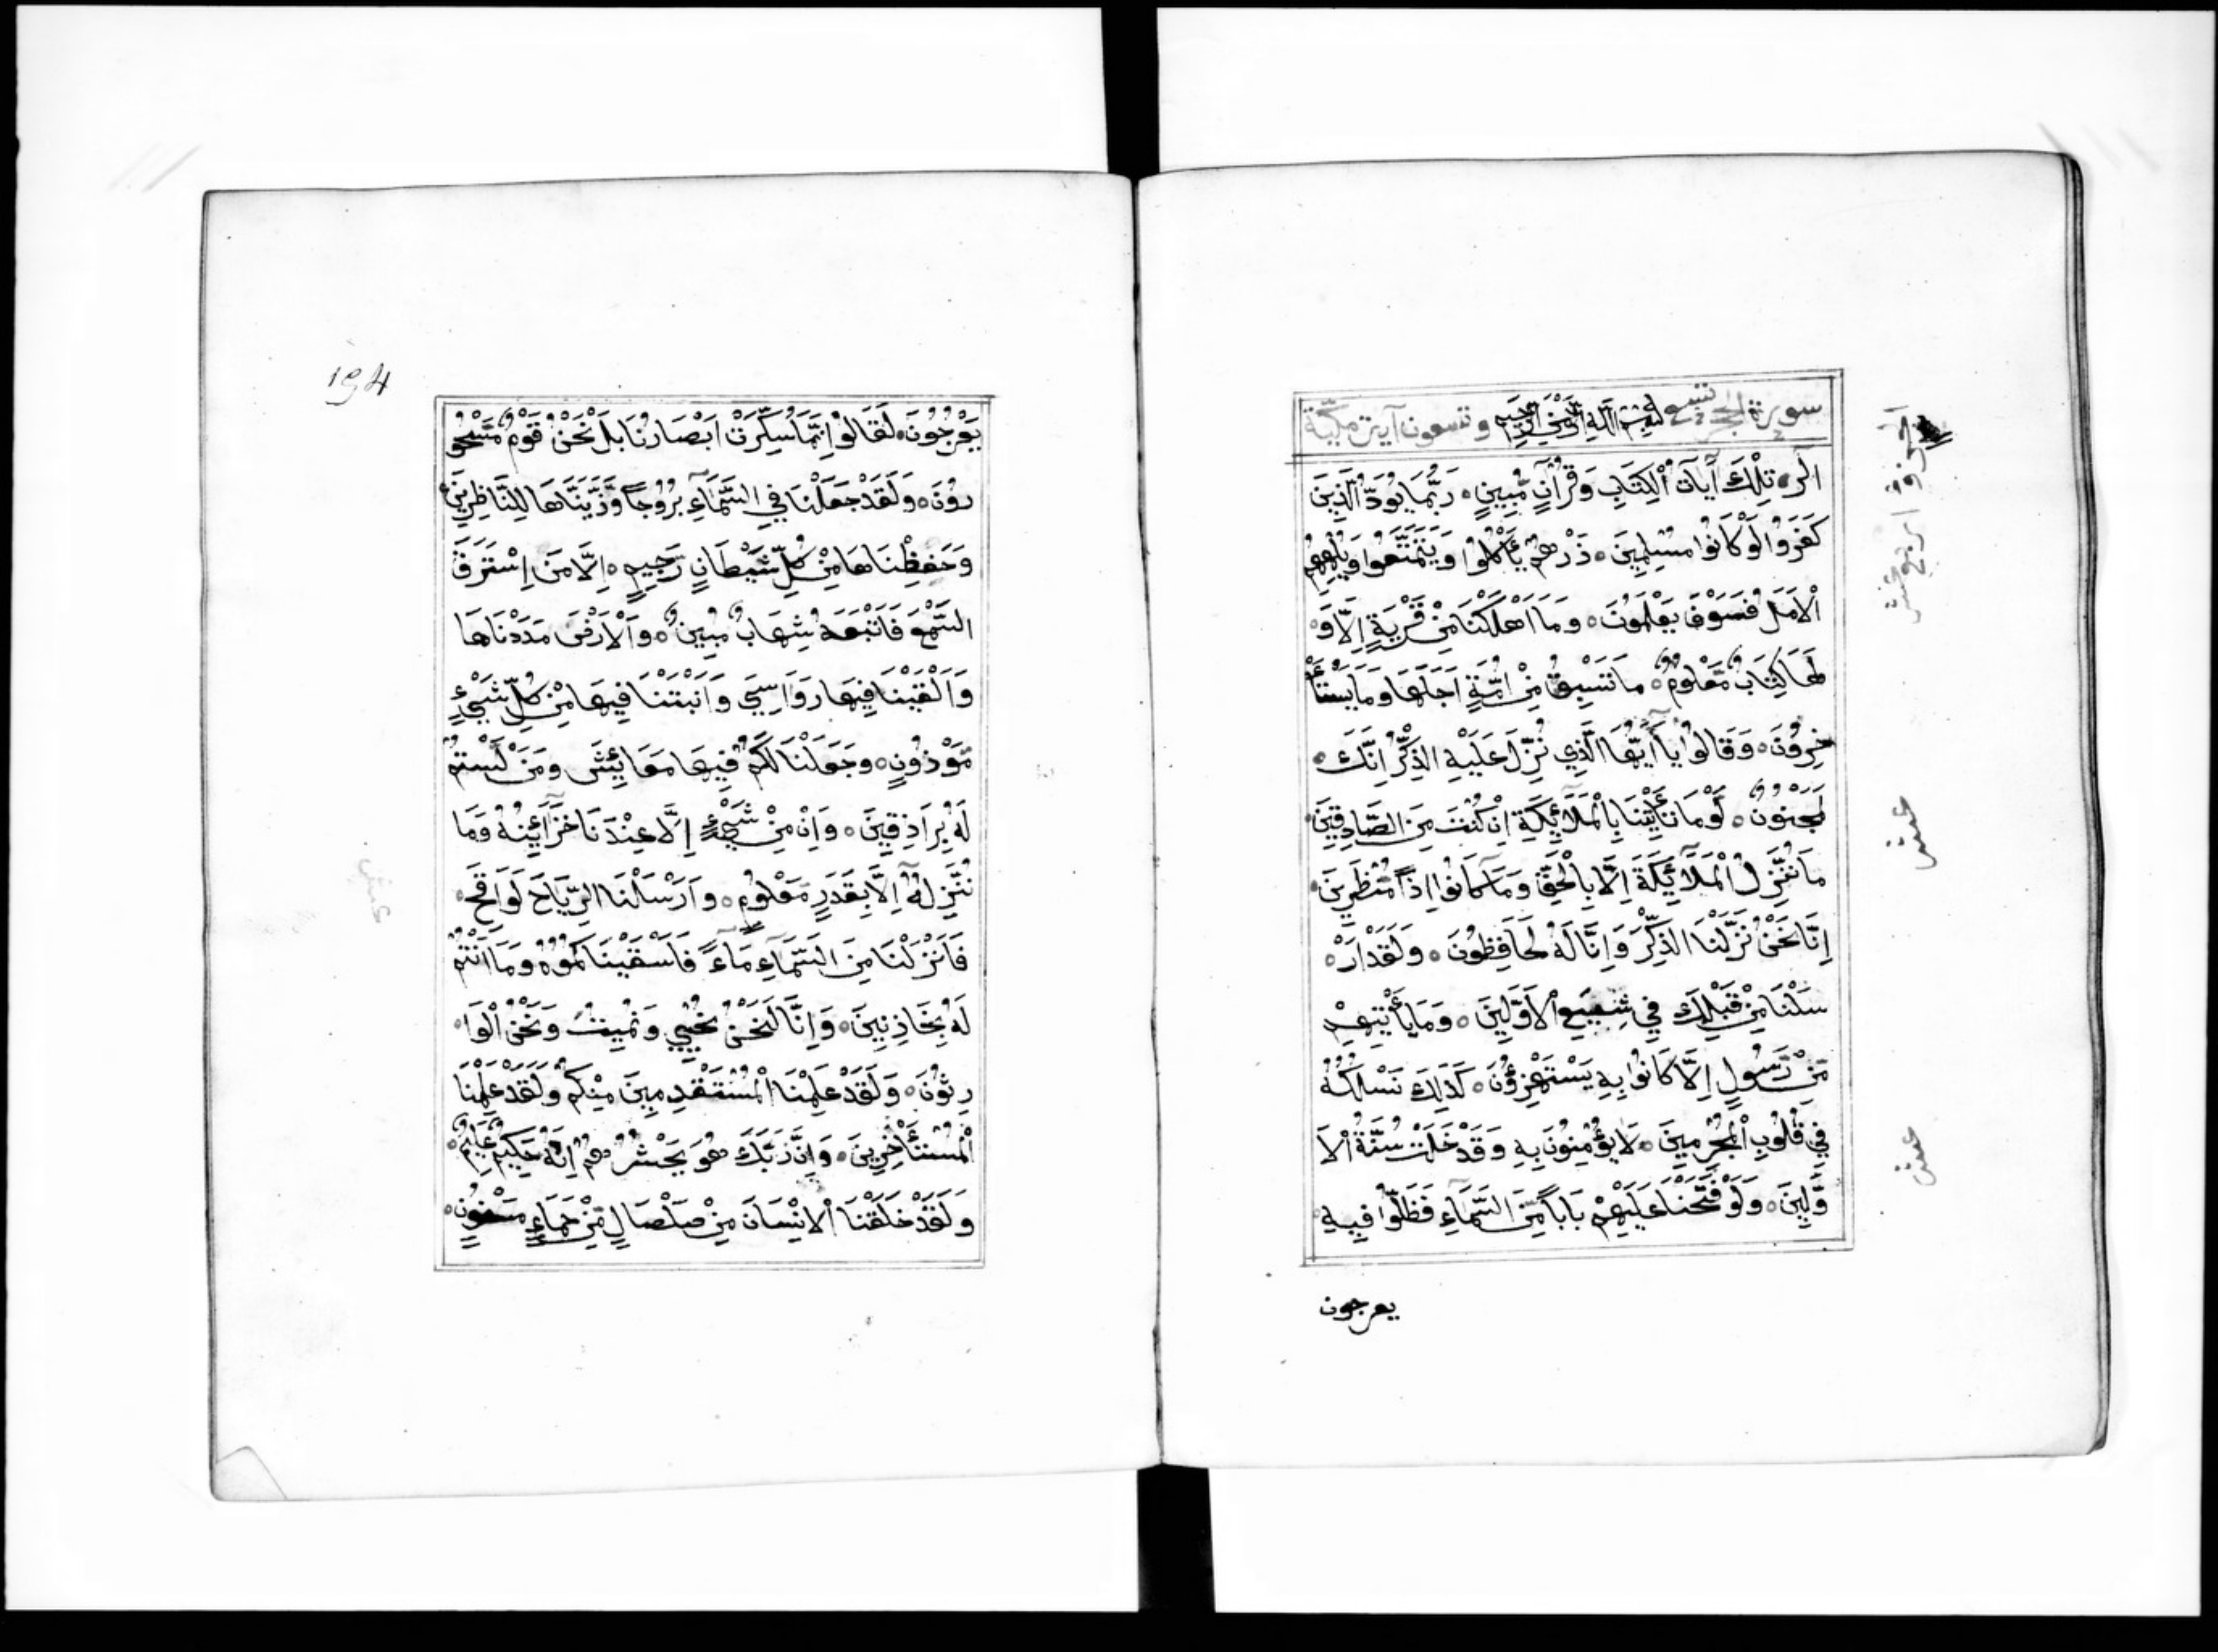 سورة الحجر تسع بسم الله الرحمن الرحيم وتسعون آية مكية
الٓر، تِلْكَ آيَاتُ الْكِتَابِ وَقُرْآنٍ مُّبِينٍ، رُبَّمَا يَوَدُّ الَّذِينَ
كَفَرُوا لَوْ كَانُوا مُسْلِمِينَ، ذَرْهُمْ يَأْكُلُوا وَيَتَمَتَّعُوا وَيُلْهِهِمُ
الْاَمَلُ فَسَوْفَ يَعْلَمُونَ، وَمَا اَهْلَكْنَا مِنْ قَرْيَةٍ اِلَّا وَ
لَهَا كِتَابٌ مَّعْلُومٌ، مَا تَسْبِقُ مِنْ اُمَّةٍ اَجَلَهَا وَمَا يَسْتَأْ
خِرُونَ، وَقَالُوا يَا اَيُّهَا الَّذِي نُزِّلَ عَلَيْهِ الذِّكْرُ اِنَّكَ
لَمَجْنُونٌ، لَوْمَا تَأْتِيْنَا بِالْمَلٰٓئِكَةِ اِنْ كُنْتَ مِنَ الصَّادِقِينَ
مَا نُنَزِّلُ الْمَلَآئِكَةَ اِلَّا بِالْحَقِّ وَمَا كَانُوا اِذًا مُّنْظَرِينَ،
اِنَّا نَحْنُ نَزَّلْنَا الذِّكْرَ وَاِنَّا لَهُ لَحَافِظُونَ، وَلَقَدْ اَرْ
سَلْنَا مِنْ قَبْلِكَ فِي شِيَعِ الْاَوَّلِينَ، وَمَا يَأْتِيهِمْ
مِّنْ رَّسُولٍ اِلَّا كَانُوا بِهِ يَسْتَهْزِؤُنَ، كَذٰلِكَ نَسْلُكُهُ
فِي قُلُوبِ الْمُجْرِمِينَ، لَا يُؤْمِنُونَ بِهِ وَقَدْ خَلَتْ سُنَّةُ الْاَ
وَّلِينَ، وَلَوْ فَتَحْنَا عَلَيْهِمْ بَابًا مِّنَ السَّمَآءِ فَظَلُّوا فِيهِ
يعرجون
عشر
عشر
يَعْرُجُونَ، لَقَالُوا اِنَّمَا سُكِّرَتْ اَبْصَارُنَا بَلْ نَحْنُ قَوْمٌ مَّسْحُو
رُونَ، وَلَقَدْ جَعَلْنَا فِي السَّمَآءِ بُرُوجًا وَّزَيَّنَّاهَا لِلنَّاظِرِينَ،
وَحَفِظْنَاهَا مِنْ كُلِّ شَيْطَانٍ رَّجِيمٍ، اِلَّا مَنِ اسْتَرَقَ
السَّمْعَ فَاَتْبَعَهُ شِهَابٌ مُّبِينٌ، وَالْاَرْضَ مَدَدْنَاهَا
وَاَلْقَيْنَا فِيهَا رَوَاسِيَ وَاَنْبَتْنَا فِيهَا مِنْ كُلِّ شَيْءٍ
مَّوْزُونٍ، وَجَعَلْنَا لَكُمْ فِيهَا مَعَايِشَ وَمَنْ لَّسْتُمْ
لَهُ بِرَازِقِينَ، وَاِنْ مِّنْ شَيْءٍ اِلَّا عِنْدَنَا خَزَآئِنُهُ وَمَا
نُنَزِّلُهُ اِلَّا بِقَدَرٍ مَّعْلُومٍ، وَاَرْسَلْنَا الرِّيَاحَ لَوَاقِحَ،
فَاَنْزَلْنَا مِنَ السَّمَآءِ مَآءً فَاَسْقَيْنَاكُمُوهُ وَمَا اَنْتُمْ
لَهُ بِخَازِنِينَ، وَاِنَّا لَنَحْنُ نُحْيِي وَنُمِيتُ وَنَحْنُ الْوَا
رِثُونَ، وَلَقَدْ عَلِمْنَا الْمُسْتَقْدِمِينَ مِنْكُمْ وَلَقَدْ عَلِمْنَا
الْمُسْتَأْخِرِينَ، وَاِنَّ رَبَّكَ هُوَ يَحْشُرُهُمْ اِنَّهُ حَكِيمٌ عَلِيمٌ،
وَلَقَدْ خَلَقْنَا الْاِنْسَانَ مِنْ صَلْصَالٍ مِّنْ حَمَاءٍ مَسْنُونٍ،
194